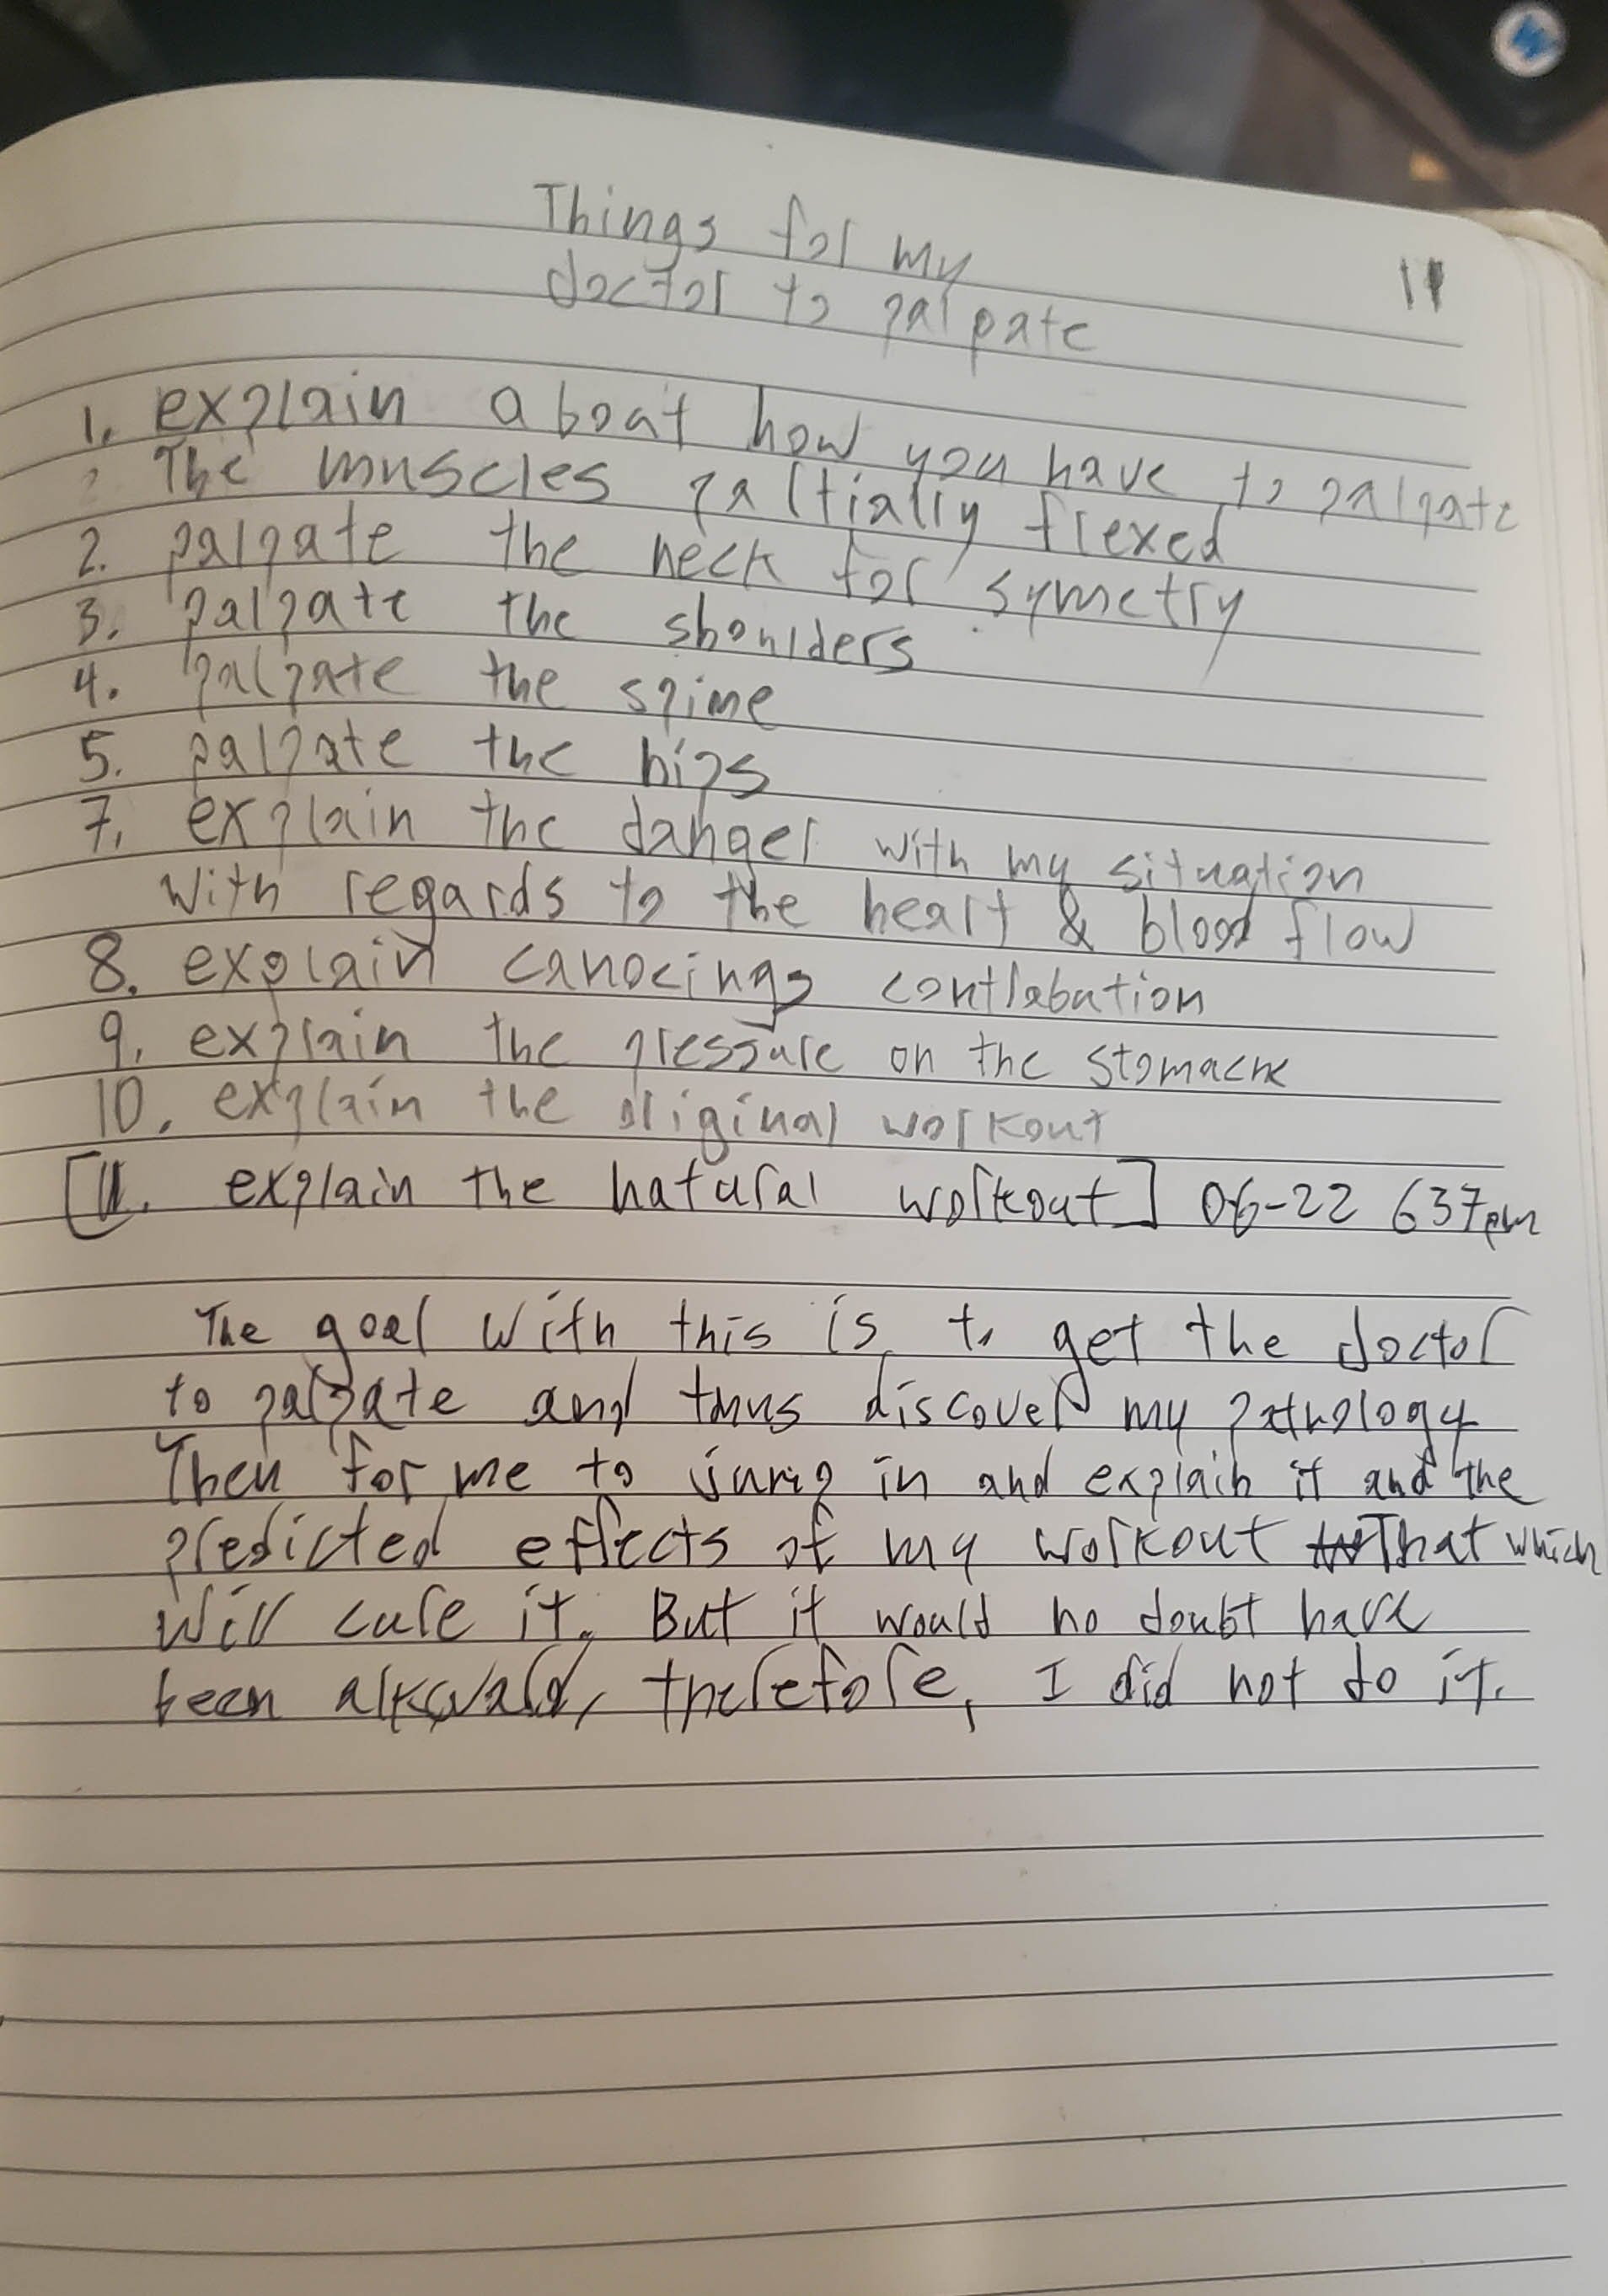 Things for my
11
doctor to palpate
1. explain about how you have to palpate
The muscles partially flexed
2. palpate the neck for symetry
3. palpate the shoulders
4. palpate the spine
5. palpate the hips
7. explain the danger with my situation
with regards to the heart & blood flow
8. explain canoeings contrabution
9. explain the pressure on the stomache
10. explain the original workout
[11. explain the natural workout] 06-22 637pm
The goal with this is to get the doctor
to palpate and thus discover my pathology
Then for me to jump in and explain it and the
predicted effects of my workout That which
will cure it. But it would no doubt have
been alkward, therefore, I did not do it.